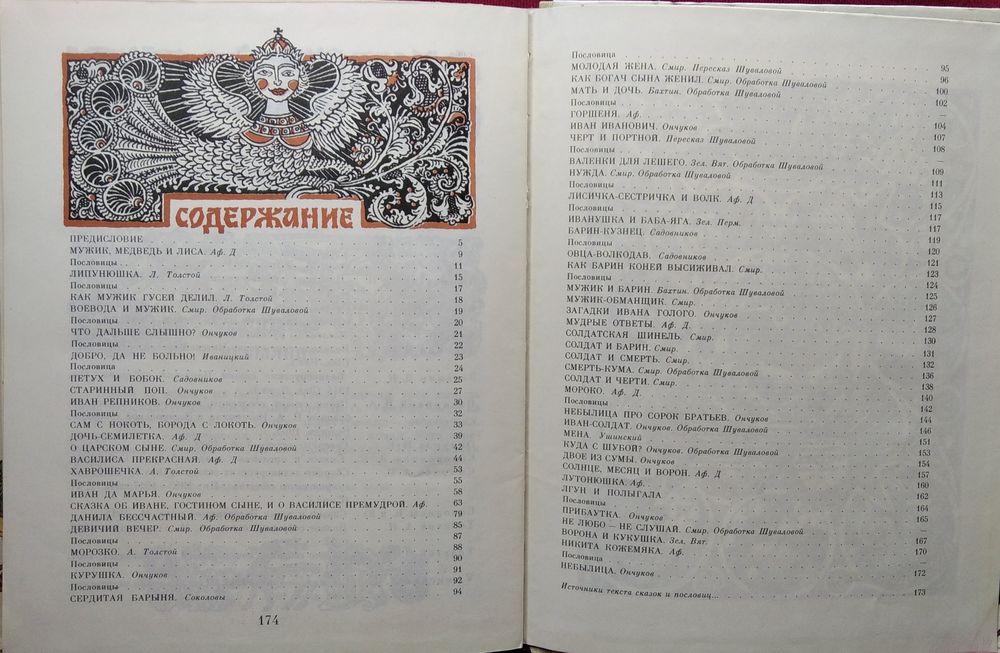 СОДЕРЖАНИЕ
ПРЕДИСЛОВИЕ 5
МУЖИК, МЕДВЕДЬ И ЛИСА. Аф. Д 9
Пословицы 11
ЛИПУНЮШКА. Л. Толстой 15
Пословицы 17
КАК МУЖИК ГУСЕЙ ДЕЛИЛ. Л. Толстой 18
ВОЕВОДА И МУЖИК. Смир. Обработка Шуваловой 19
Пословицы 20
ЧТО ДАЛЬШЕ СЛЫШНО? Ончуков 21
Пословицы 22
ДОБРО, ДА НЕ БОЛЬНО! Иваницкий 23
Пословица 24
ПЕТУХ И БОБОК. Садовников 25
СТАРИННЫЙ ПОП. Ончуков 27
ИВАН РЕПНИКОВ. Ончуков 30
Пословицы 32
САМ С НОКОТЬ, БОРОДА С ЛОКОТЬ. Ончуков 33
ДОЧЬ-СЕМИЛЕТКА. Аф. Д 39
О ЦАРСКОМ СЫНЕ. Смир. Обработка Шуваловой 42
ВАСИЛИСА ПРЕКРАСНАЯ. Аф. Д 44
ХАВРОШЕЧКА. А. Толстой 53
Пословицы 55
ИВАН ДА МАРЬЯ. Ончуков 58
СКАЗКА ОБ ИВАНЕ, ГОСТИНОМ СЫНЕ, И О ВАСИЛИСЕ ПРЕМУДРОЙ. Аф. 63
ДАНИЛА БЕССЧАСТНЫЙ. Аф. Обработка Шуваловой 79
ДЕВИЧИЙ ВЕЧЕР. Смир. Обработка Шуваловой 85
Пословицы 87
МОРОЗКО. А. Толстой 88
Пословицы 90
КУРУШКА. Ончуков 91
Пословицы 92
СЕРДИТАЯ БАРЫНЯ. Соколовы 94
174
Пословица
МОЛОДАЯ ЖЕНА. Смир. Пересказ Шуваловой 95
КАК БОГАЧ СЫНА ЖЕНИЛ. Смир. Обработка Шуваловой 96
МАТЬ И ДОЧЬ. Бахтин. Обработка Шуваловой 100
Пословицы 102
ГОРШЕНЯ. Аф. —
ИВАН ИВАНОВИЧ. Ончуков 104
ЧЕРТ И ПОРТНОЙ. Пересказ Шуваловой 107
Пословицы 108
ВАЛЕНКИ ДЛЯ ЛЕШЕГО. Зел. Вят. Обработка Шуваловой —
НУЖДА. Смир. Обработка Шуваловой 109
Пословицы 111
ЛИСИЧКА-СЕСТРИЧКА И ВОЛК. Аф. Д 113
Пословицы 115
ИВАНУШКА И БАБА-ЯГА. Зел. Перм. 117
БАРИН-КУЗНЕЦ. Садовников 117
Пословицы 119
ОВЦА-ВОЛКОДАВ. Садовников 120
КАК БАРИН КОНЕЙ ВЫСИЖИВАЛ. Смир. 121
Пословицы 123
МУЖИК И БАРИН. Бахтин. Обработка Шуваловой 124
МУЖИК-ОБМАНЩИК. Смир. 125
ЗАГАДКИ ИВАНА ГОЛОГО. Ончуков 126
МУДРЫЕ ОТВЕТЫ. Аф. Д. 127
СОЛДАТСКАЯ ШИНЕЛЬ. Смир. 128
СОЛДАТ И БАРИН. Смир. 130
СОЛДАТ И СМЕРТЬ. Смир. 131
СМЕРТЬ-КУМА. Смир. Обработка Шуваловой 132
СОЛДАТ И ЧЕРТИ. Смир. 136
МОРОКО. Аф. Д. 138
Пословицы 140
НЕБЫЛИЦА ПРО СОРОК БРАТЬЕВ. Ончуков 142
ИВАН-СОЛДАТ. Ончуков. Обработка Шуваловой 144
МЕНА. Ушинский 146
КУДА С ШУБОЙ? Ончуков. Обработка Шуваловой 151
ДВОЕ ИЗ СУМЫ. Ончуков 153
СОЛНЦЕ, МЕСЯЦ И ВОРОН. Аф. Д 154
ЛУТОНЮШКА. Аф. 157
ЛГУН И ПОДЛЫГАЛА 160
Пословицы 162
ПРИБАУТКА. Ончуков 164
НЕ ЛЮБО — НЕ СЛУШАЙ. Смир. Обработка Шуваловой 165
ВОРОНА И КУКУШКА. Зел. Вят. 167
НИКИТА КОЖЕМЯКА. Аф. 170
Пословица
НЕБЫЛИЦА. Ончуков 172
Источники текста сказок и пословиц... 173